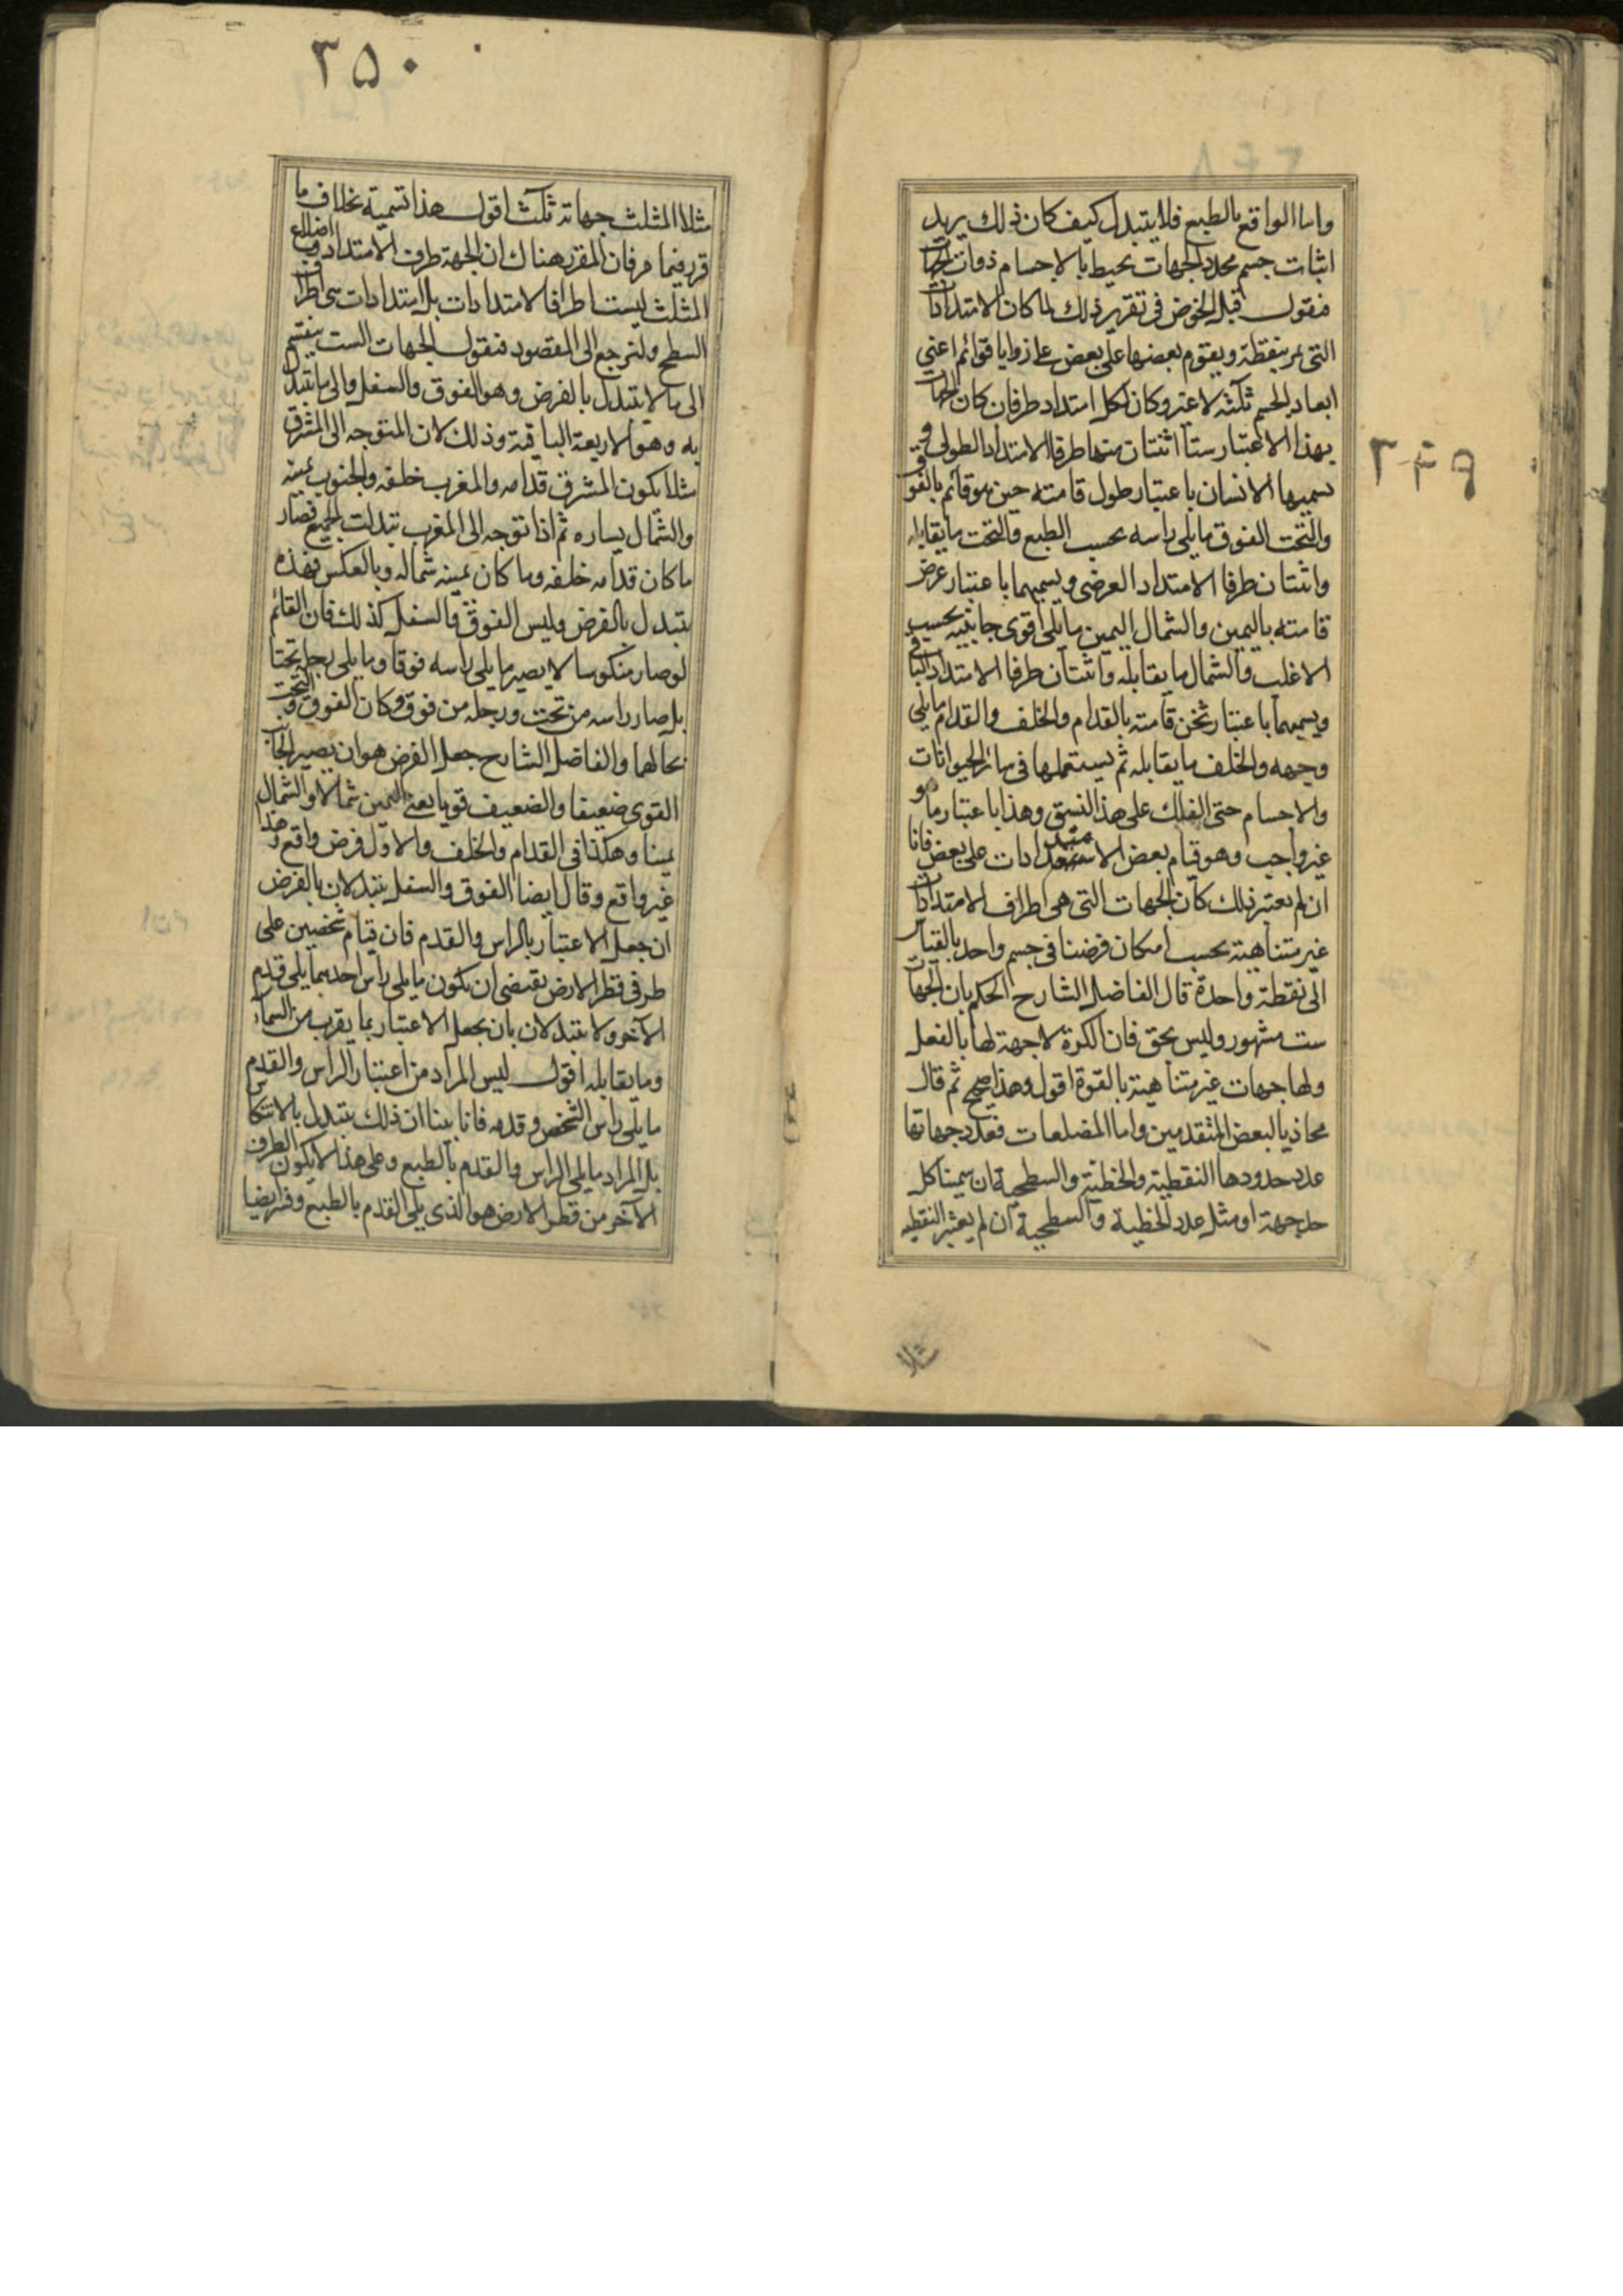 ٣٤٩
واما الواقع بالطبع فلا يتبدل كيف كان ذلك يريد
اثبات جسم محدد الجهات يحيط بالاجسام ذوات الجهات
فنقول قبل الخوض فى تقرير ذلك لما كان الامتدادات
التى تمر بنقطة ويقوم بعضها على بعض على زوايا قوائم اعنى
ابعاد الجسم ثلثة لا غير وكان لكل امتداد طرفان كان الجهات
بهذا الاعتبار ستا اثنتان منها طرفا الامتداد الطولى و
يسميها الانسان باعتبار طول قامته حين هو قائم بالفوق
والتحت الفوق ما يلى راسه بحسب الطبع والتحت ما يقابله
واثنتان طرفا الامتداد العرضى ويسميهما باعتبار عرض
قامته باليمين والشمال اليمين ما يلى اقوى جانبيه بحسب
الاغلب والشمال ما يقابله واثنتان طرفا الامتداد الباقى
ويسميهما باعتبار ثخن قامته بالقدام والخلف والقدام ما يلى
وجهه والخلف ما يقابله ثم يستعملها فى سائر الحيوانات
والاجسام حتى الفلك على هذا النسق وهذا باعتبار ما هو
غير واجب وهو قيام بعض الامتدادات على بعض فانا
ان لم نعتبر ذلك كان الجهات التى هى اطراف الامتدادات
غير متناهية بحسب امكان فرضنا فى جسم واحد بالقياس
الى نقطة واحدة قال الفاضل الشارح الحكم بان الجهات
ست مشهور وليس بحق فان الكرة لا جهة لها بالفعل
ولها جهات غير متناهية بالقوة اقول وهذا صحيح ثم قال
محاذيا لبعض المتقدمين واما المضلعات فعدد جهاتها
عدد حدودها النقطية والخطية والسطحية ان سمينا كل
حد جهة او مثل عدد الخطية والسطحية ان لم يعتبر النقطية
مثلا
٣٥٠
مثلا المثلث جهاته ثلث اقول هذا تسمية بخلاف ما
قرر فيما مر فان المقرر هناك ان الجهة طرف الامتداد واضلاع
المثلث ليست اطرافا لامتدادات بل امتدادات هى اطراف
السطح ولنرجع الى المقصود فنقول الجهات الست ينقسم
الى ما لا يتبدل بالفرض وهو الفوق والسفل والى ما يتبدل
به وهو الاربعة الباقية وذلك لان المتوجه الى المشرق
مثلا يكون المشرق قدامه والمغرب خلفه والجنوب يمينه
والشمال يساره ثم اذا توجه الى المغرب تبدلت الجميع فصار
ما كان قدامه خلفه وما كان يمينه شماله وبالعكس فهذه
يتبدل بالفرض وليس الفوق والسفل كذلك فان القائم
لو صار منكوسا لا يصير ما يلى راسه فوقا وما يلى رجله تحتا
بل صار راسه من تحت ورجله من فوق وكان الفوق والتحت
بحالهما والفاضل الشارح جعل الفرض هو ان يصير الجانب
القوى ضعيفا والضعيف قويا يعنى اليمين شمالا والشمال
يمينا وهكذا فى القدام والخلف والاول فرض واقع وهذا
غير واقع وقال ايضا الفوق والسفل يتبدلان بالفرض
ان جعل الاعتبار بالراس والقدم فان قيام شخصين على
طرفى قطر الارض يقتضى ان يكون ما يلى راس احدهما يلى قدم
الآخر ولا يتبدلان بان يجعل الاعتبار بما يقرب من السماء
وما يقابله اقول ليس المراد من اعتبار الراس والقدم
ما يلى راس الشخص وقدمه فانا بينا ان ذلك يتبدل بالانتكاس
بل المراد ما يلى الراس والقدم بالطبع وعلى هذا لا يكون الطرف
الآخر من قطر الارض هو الذى يلى القدم بالطبع وفسر ايضا